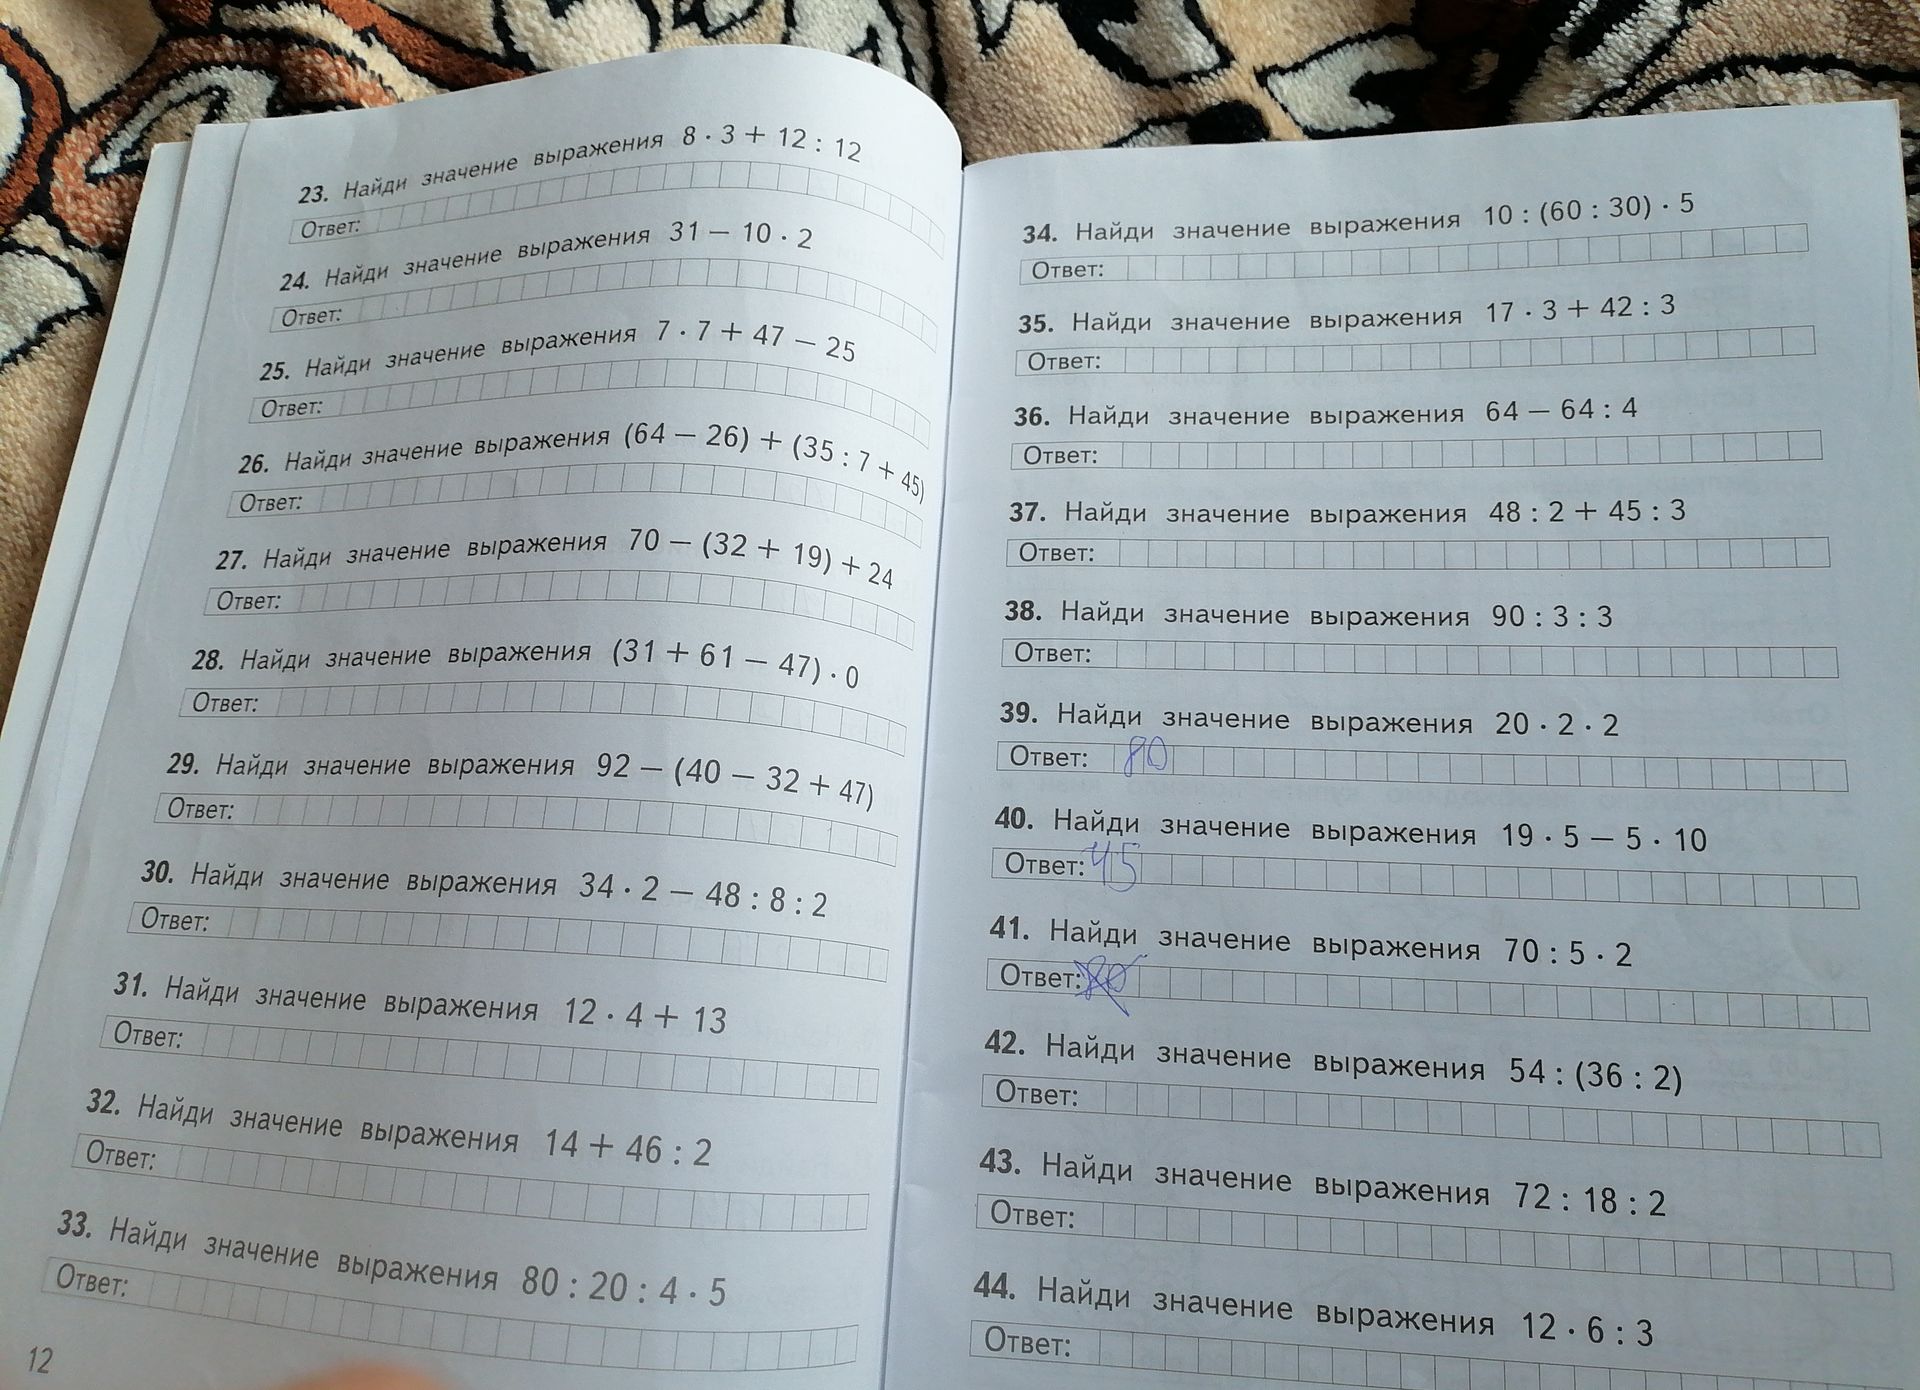 23. Найди значение выражения 8 · 3 + 12 : 12
Ответ:
24. Найди значение выражения 31 − 10 · 2
Ответ:
25. Найди значение выражения 7 · 7 + 47 − 25
Ответ:
26. Найди значение выражения (64 − 26) + (35 : 7 + 45)
Ответ:
27. Найди значение выражения 70 − (32 + 19) + 24
Ответ:
28. Найди значение выражения (31 + 61 − 47) · 0
Ответ:
29. Найди значение выражения 92 − (40 − 32 + 47)
Ответ:
30. Найди значение выражения 34 · 2 − 48 : 8 : 2
Ответ:
31. Найди значение выражения 12 · 4 + 13
Ответ:
32. Найди значение выражения 14 + 46 : 2
Ответ:
33. Найди значение выражения 80 : 20 : 4 · 5
Ответ:
12
34. Найди значение выражения 10 : (60 : 30) · 5
Ответ:
35. Найди значение выражения 17 · 3 + 42 : 3
Ответ:
36. Найди значение выражения 64 − 64 : 4
Ответ:
37. Найди значение выражения 48 : 2 + 45 : 3
Ответ:
38. Найди значение выражения 90 : 3 : 3
Ответ:
39. Найди значение выражения 20 · 2 · 2
Ответ: 80
40. Найди значение выражения 19 · 5 − 5 · 10
Ответ: 45
41. Найди значение выражения 70 : 5 · 2
Ответ:
42. Найди значение выражения 54 : (36 : 2)
Ответ:
43. Найди значение выражения 72 : 18 : 2
Ответ:
44. Найди значение выражения 12 · 6 : 3
Ответ: